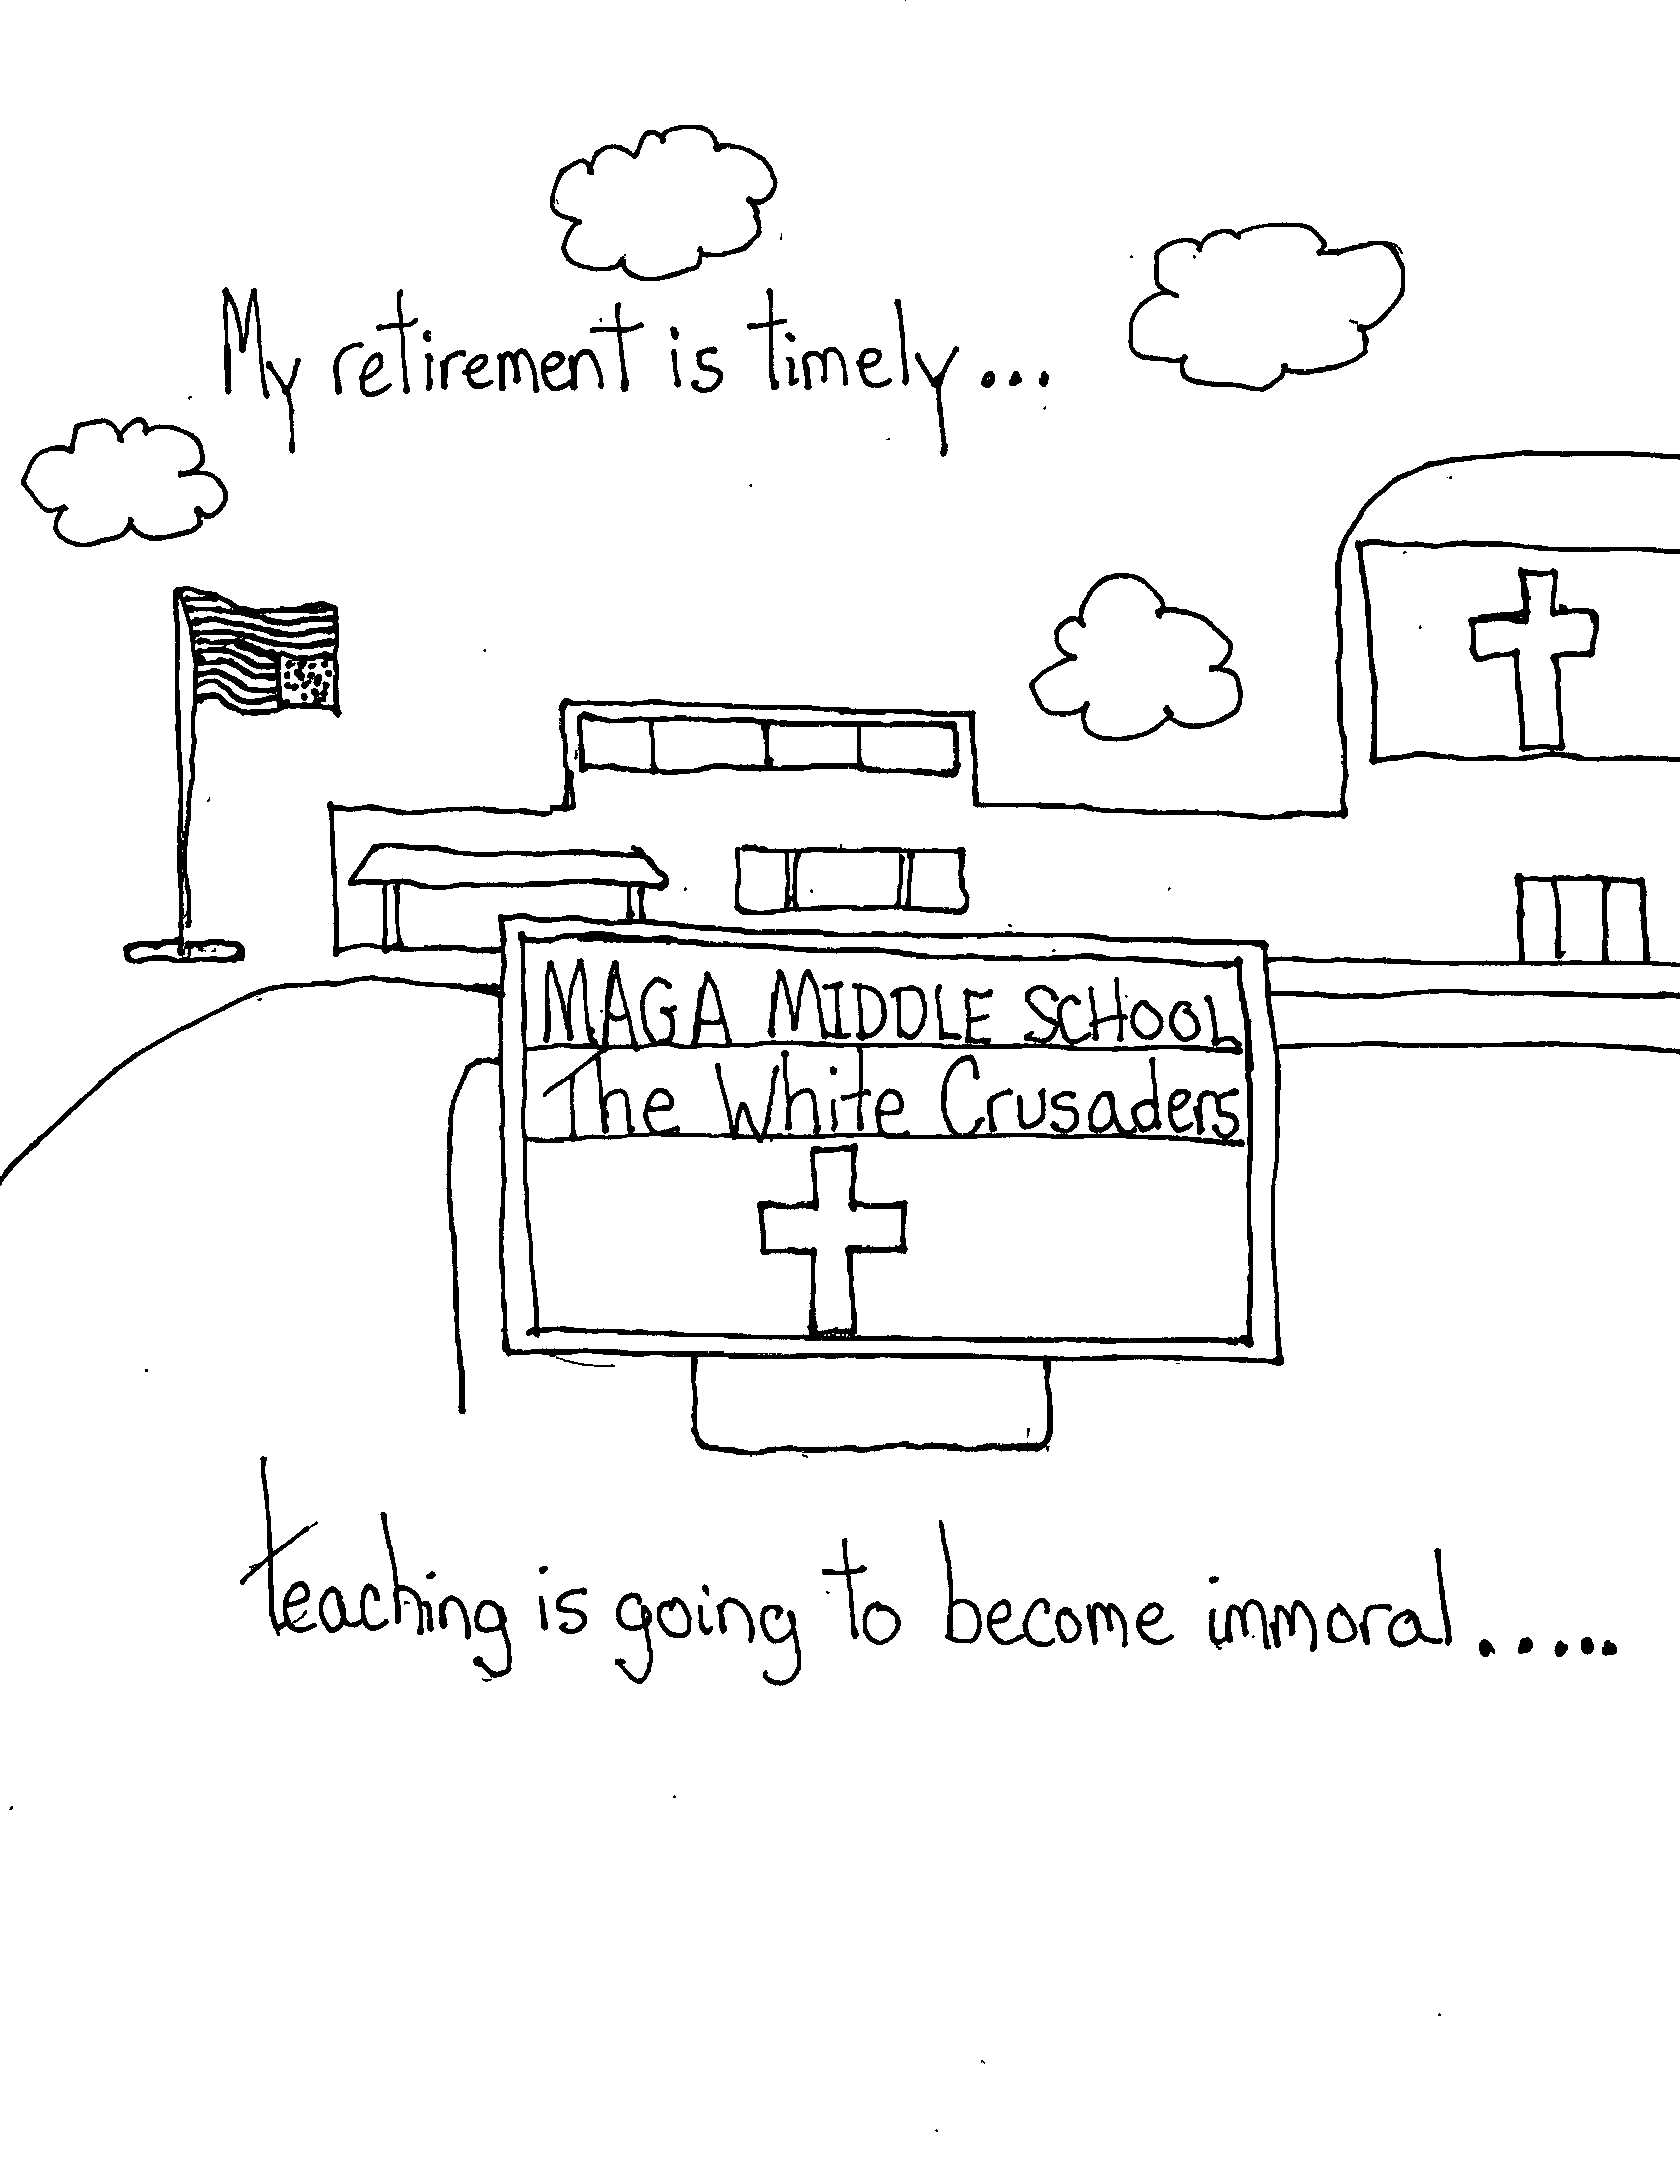 My retirement is timely...
MAGA MIDDLE SCHOOL
The White Crusaders
teaching is going to become immoral.....